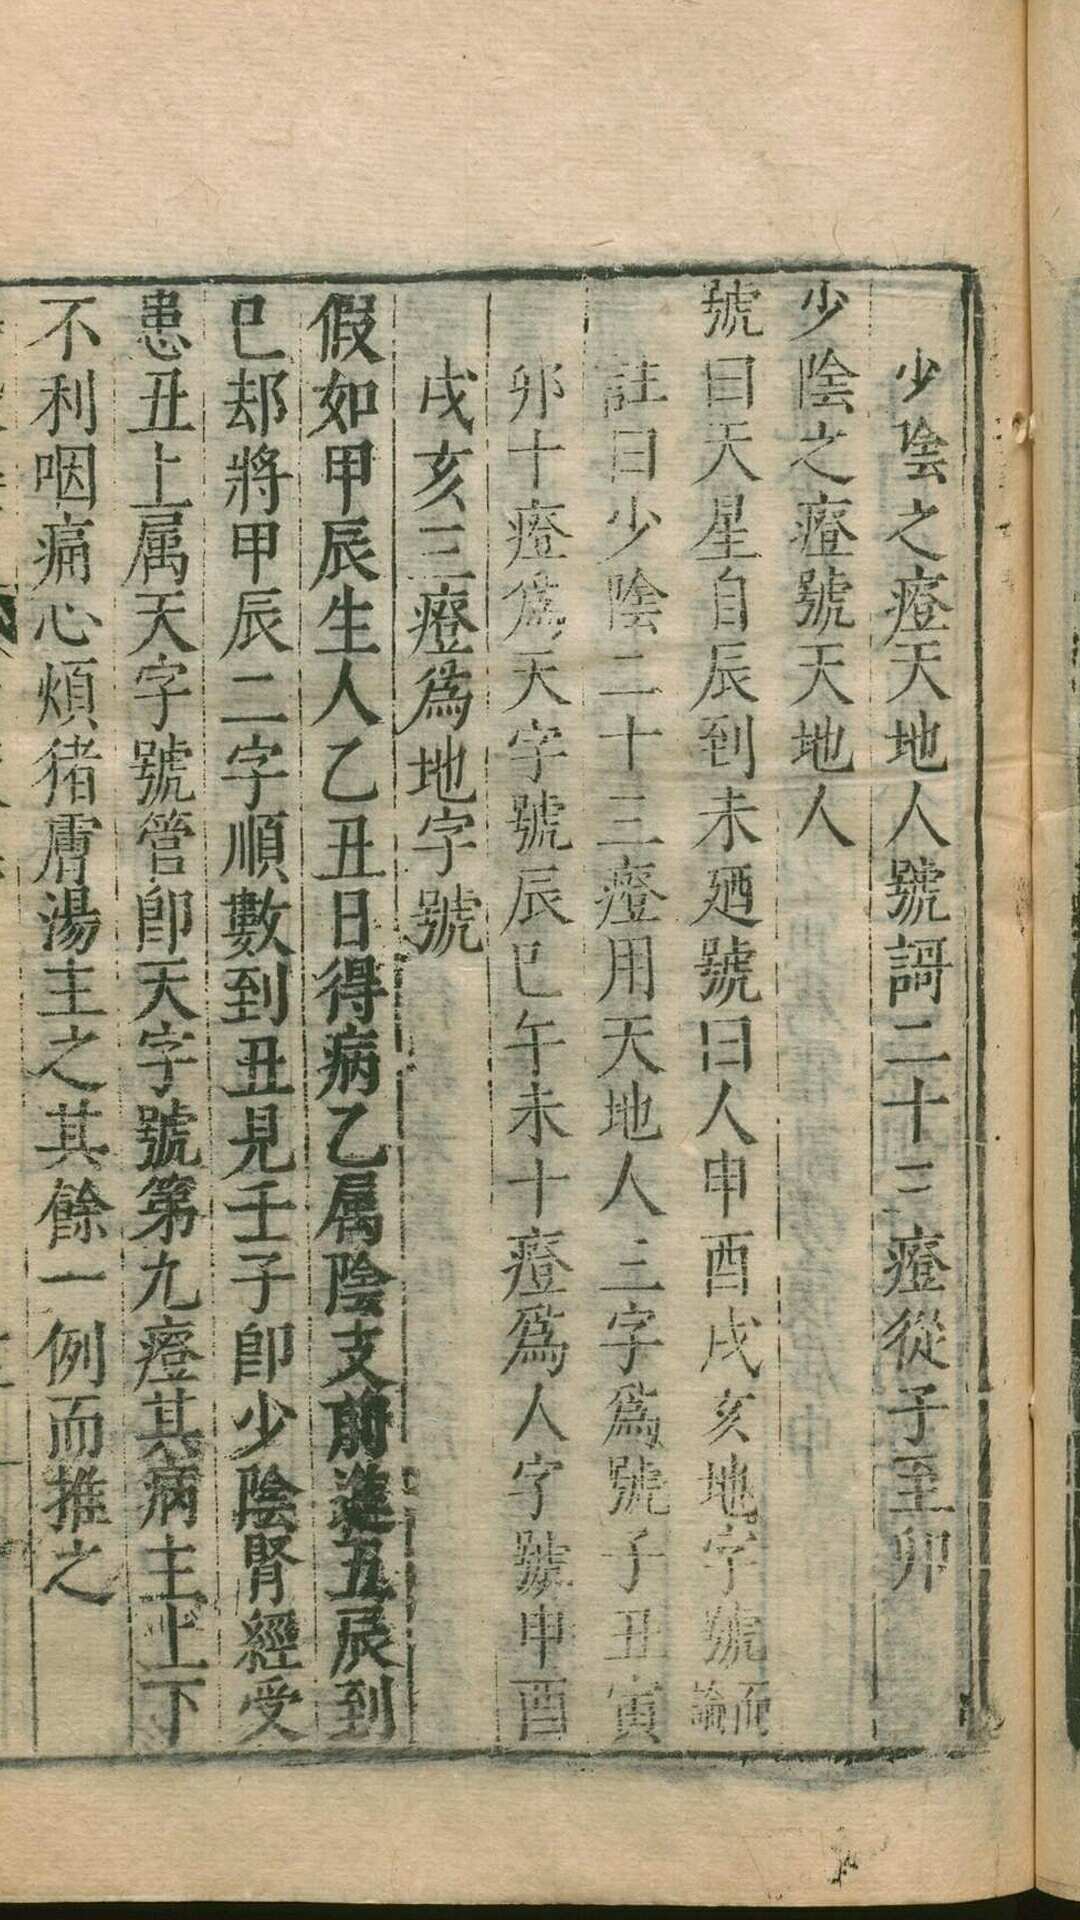 少陰之𤺺天地人號謌二十三𤺺從子至卯
少陰之𤺺號天地人
號曰天星自辰到未廼號曰人申酉戌亥地字號而論
註曰少陰二十三𤺺用天地人三字爲號子丑寅
卯十𤺺爲天字號辰巳午未十𤺺爲人字號申酉
戌亥三𤺺爲地字號
假如甲辰生人乙丑日得病乙属陰支前進五辰到
巳却將甲辰二字順數到丑見壬子卽少陰腎經受
患丑上属天字號管卽天字號第九𤺺其病主上下
不利咽痛心煩猪膚湯主之其餘一例而推之